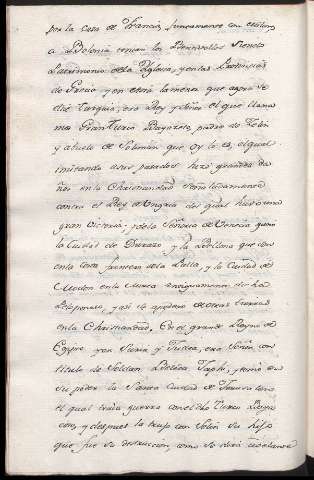 por la Casa de Francia, juntamente con
a Bolonia tenian los Bentivollas siendo
Patrimonio de la Yglesia, y en las Provincias
de Grecia y en otra la menor que agora se
dice Turquia, era Rey y Señor el que llama
mos Gran Turco Bayaceto, padre de Zelin
y abuelo de Soliman que oy lo es, el qual
imitando a sus pasados hizo grandes da
ños en la Christiandad señaladamente
contra el Rey de Ungria del qual hubo una
gran victoria, y de la Señoria de Venecia ganó
la Ciudad de Durazo y la Bellona que son
en la costa frontera de la Pulla, y la Ciudad de
Modon en la Morea antiguamente dicha
Peloponeso, y asi se apoderó de otras tierras
en la Christiandad. En el grande Reyno de
Egypto y en Suria y Judea, era Señor con
titulo de Soldan, y tenia en
su poder la Santa Ciudad de Jerusalem
el qual traia guerra con el dho Turco Baya
ceto, y despues la trajo con Zelin su hijo
que fue su destruccion, como se dirá adelante